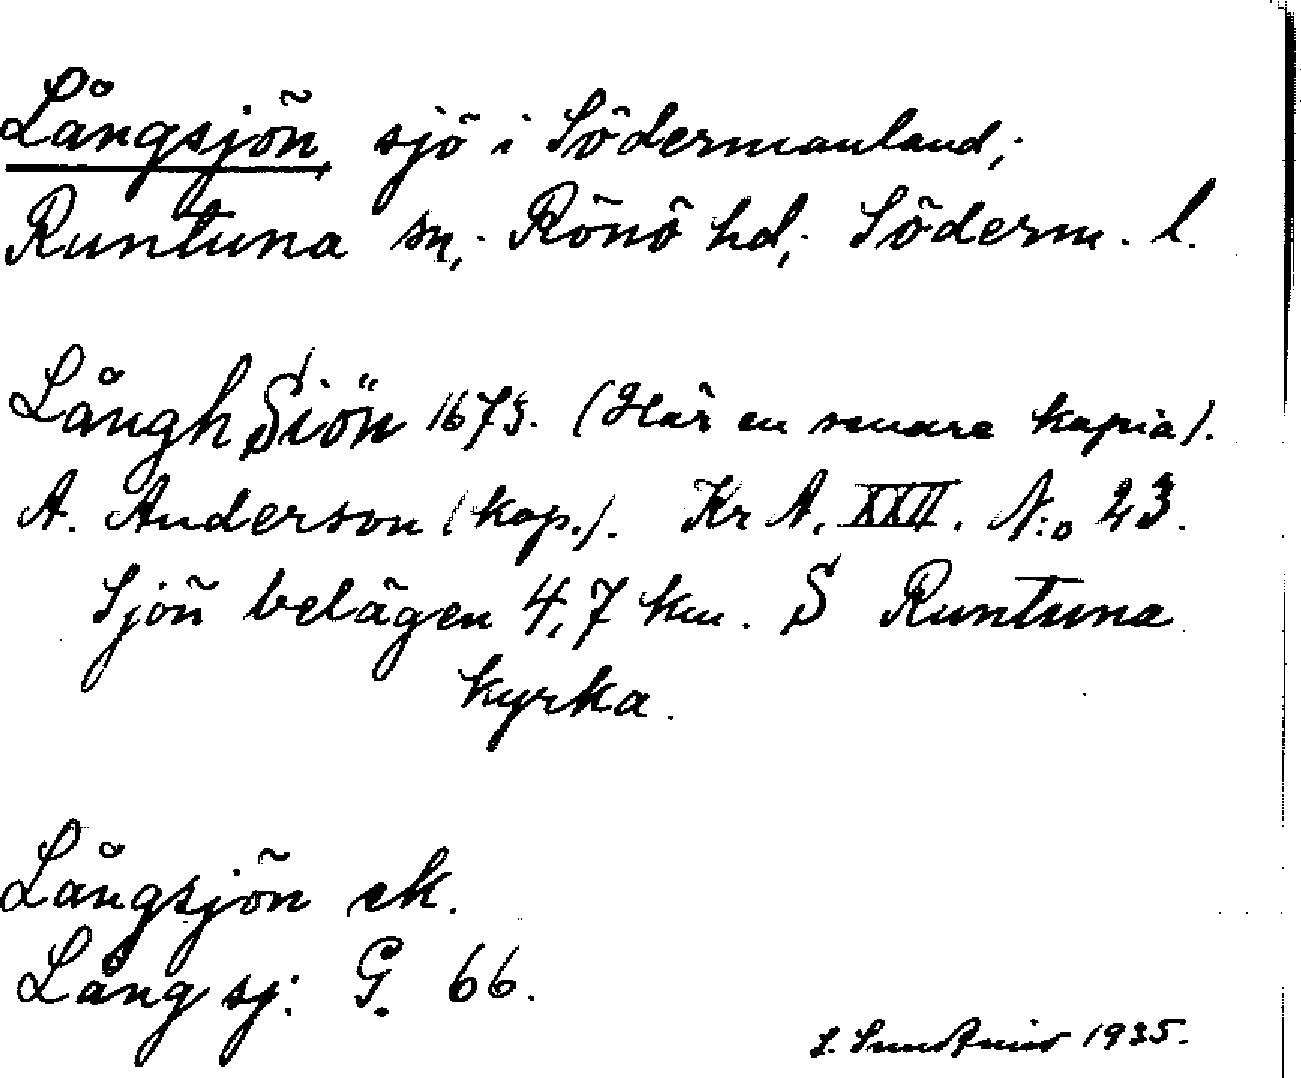 Långsjön, sjö i Södermanland;
Runtuna sn, Rönö hd, Söderm. l.
Långh Siön 1673. (Här en senare kopia).
A. Anderson (kop.). Kr A. XXII. N:o 23.
Sjön belägen 4,7 km. S Runtuna
kyrka.
Långsjön ek.
Lång sj: G. 66.
1935.